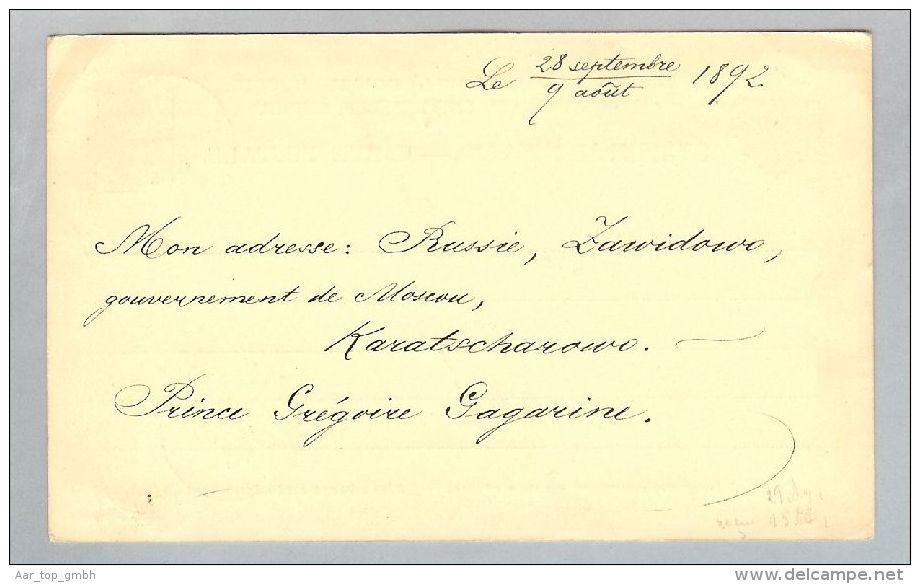 Le 28 septembre 1892
9 août
Mon adresse: Russie, Zawidowo,
gouvernement de Moscou,
Karatscharowo.
Prince Grégoire Gagarine.
Aar_top_gmbh
www.delcampe.net